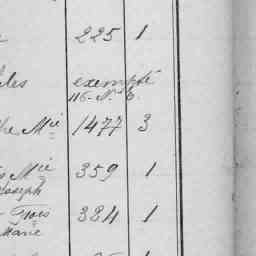 225 1
les exempté
116-N. 6.
he Mie 1477 3
s Mie 359 1
Joseph
Fois 384 1
Marie